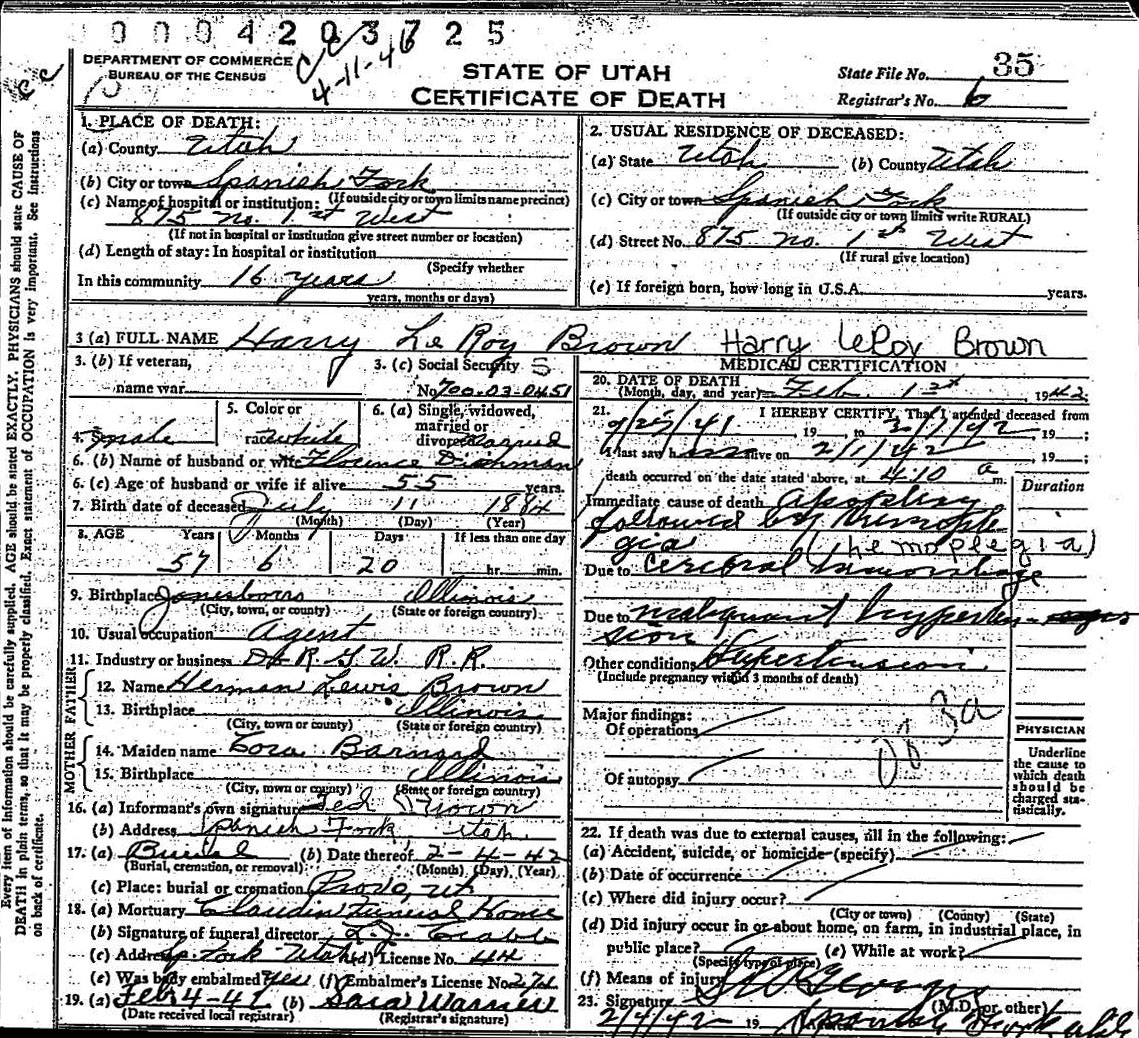 0 0 0 4 2 0 3 7 2 5
cc 4-11-46
cc
DEPARTMENT OF COMMERCE
BUREAU OF THE CENSUS
STATE OF UTAH
CERTIFICATE OF DEATH
State File No. 35
Registrar's No. 6
Every item of information should be carefully supplied. AGE should be stated EXACTLY. PHYSICIANS should state CAUSE OF
DEATH in plain terms, so that it may be properly classified. Exact statement of OCCUPATION is very important. See instructions
on back of certificate.
1. PLACE OF DEATH:
(a) County Utah
(b) City or town Spanish Fork
(If outside city or town limits name precinct)
(c) Name of hospital or institution:
875 no. 1st West
(If not in hospital or institution give street number or location)
(d) Length of stay: In hospital or institution
(Specify whether
In this community 16 years
years, months or days)
2. USUAL RESIDENCE OF DECEASED:
(a) State Utah (b) County Utah
(c) City or town Spanish Fork
(If outside city or town limits write RURAL)
(d) Street No. 875 no. 1st West
(If rural give location)
(e) If foreign born, how long in U.S.A. years.
3 (a) FULL NAME Harry Le Roy Brown Harry LeRoy Brown
3. (b) If veteran,
name war
3. (c) Social Security
No. 700-03-0451
5
4. Sex male
5. Color or
race white
6. (a) Single, widowed,
married or
divorced married
6. (b) Name of husband or wife Florence
6. (c) Age of husband or wife if alive 55 years.
7. Birth date of deceased July 11 1884
(Month) (Day) (Year)
8. AGE Years Months Days If less than one day
57 6 20 hr. min.
9. Birthplace Jonesboro Illinois
(City, town, or county) (State or foreign country)
10. Usual occupation Agent
11. Industry or business D & R G W. R.R.
FATHER
12. Name Herman Lewis Brown
13. Birthplace Illinois
(City, town or county) (State or foreign country)
MOTHER
14. Maiden name Cora Barnard
15. Birthplace Illinois
(City, town or county) (State or foreign country)
16. (a) Informant's own signature Ted Brown
(b) Address Spanish Fork Utah
17. (a) Burial (b) Date thereof 2-4-42
(Burial, cremation, or removal) (Month) (Day) (Year)
(c) Place: burial or cremation Provo, Ut
18. (a) Mortuary Claudin Funeral Home
(b) Signature of funeral director
(c) Address Sp. Fork Utah (d) License No. 44
(e) Was body embalmed? Yes (f) Embalmer's License No. 276
19. (a) Feb 4-42 (b) Sara Warner
(Date received local registrar) (Registrar's signature)
MEDICAL CERTIFICATION
20. DATE OF DEATH
(Month, day, and year) Feb. 1st 1942
21. I HEREBY CERTIFY, That I attended deceased from
9/25/41 19 , to 2/1/42, 19 ;
I last saw h alive on 2/1/42 19 ;
death occurred on the date stated above, at 4:10 a m.
Duration
Immediate cause of death apoplexy
followed by hemople
gia (hemoplegia)
Due to Cerebral hemorrhage
Due to malignant hyperten-
sion
Other conditions Hypertension
(Include pregnancy within 3 months of death)
Major findings:
Of operations
Of autopsy
083a
PHYSICIAN
Underline
the cause to
which death
should be
charged sta-
tistically.
22. If death was due to external causes, fill in the following:
(a) Accident, suicide, or homicide (specify)
(b) Date of occurrence
(c) Where did injury occur?
(City or town) (County) (State)
(d) Did injury occur in or about home, on farm, in industrial place, in
public place? (e) While at work?
(Specify type of place)
(f) Means of injury
23. Signature
(M.D. or other)
2/4/42 19 Spanish Fork Utah